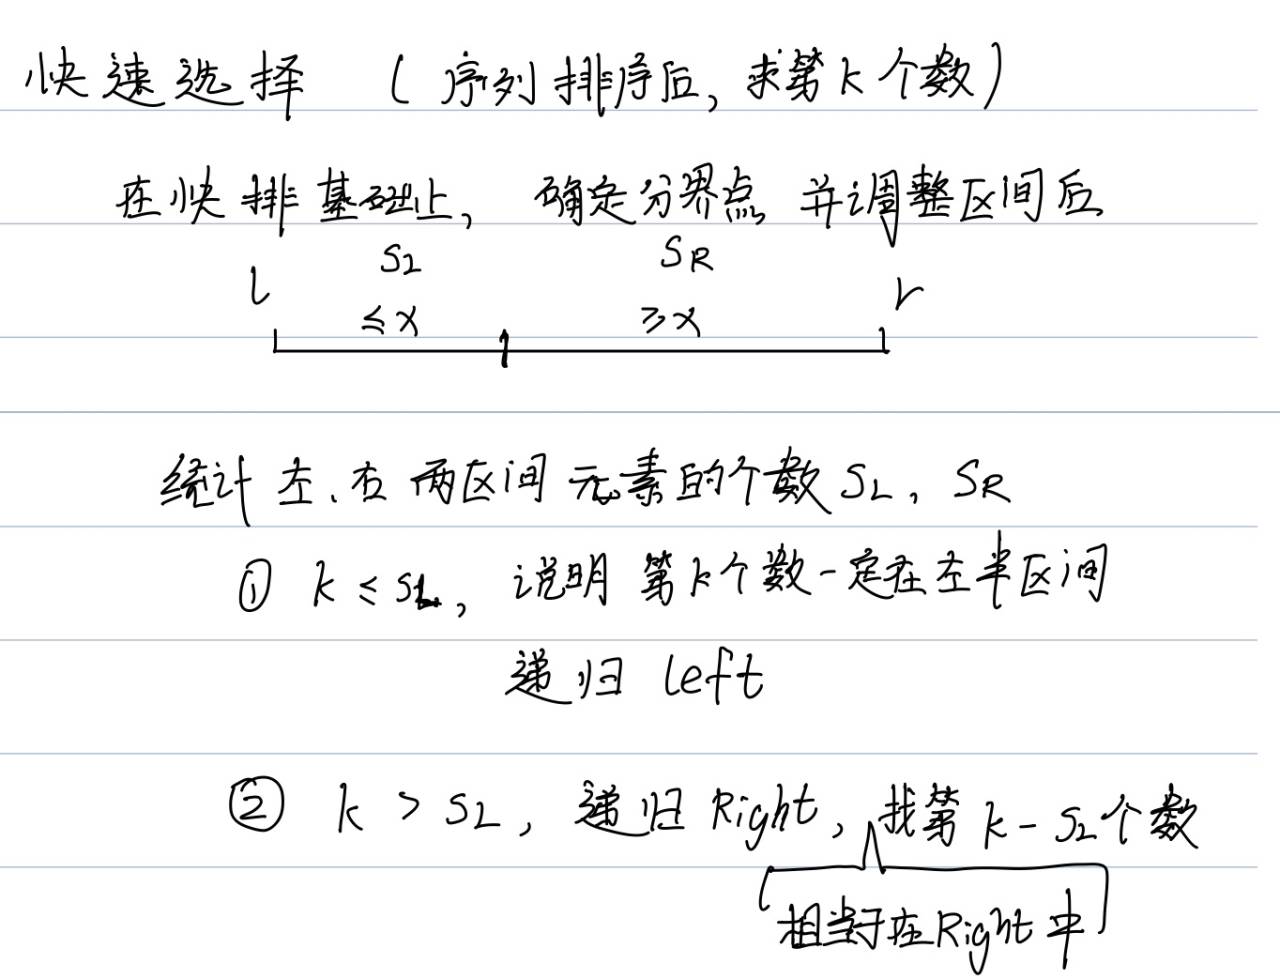 快速选择 （序列排序后，求第k个数）
在快排基础上，确定分界点 并调整区间后
SL SR
l r
≤x ≥x
统计 左、右 两区间 元素的个数 SL，SR
① k ≤ SL，说明 第k个数一定在左半区间
递归 left
② k > SL，递归 Right，找第 k-SL个数
相当于在Right中